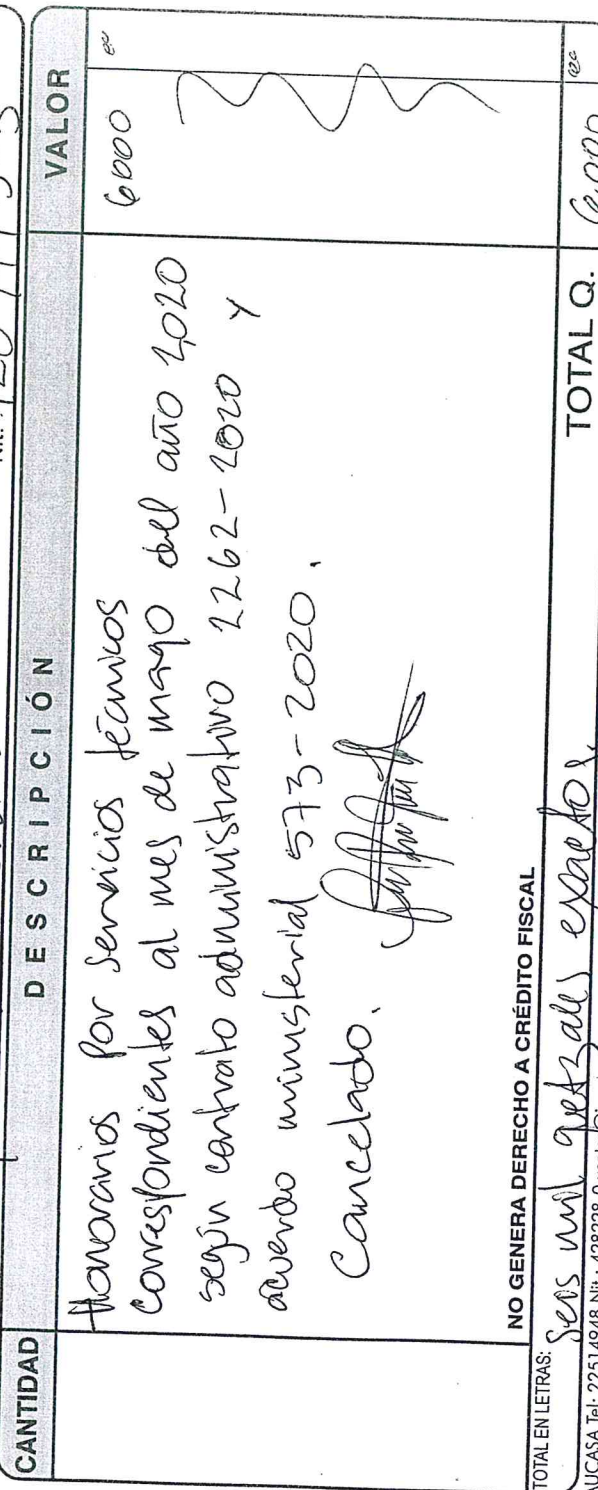 CANTIDAD DESCRIPCIÓN VALOR
Honorarios por servicios técnicos 6000 00
correspondientes al mes de mayo del año 2020
según contrato administrativo 2262-2020 y
acuerdo ministerial 573-2020.
Cancelado.
NO GENERA DERECHO A CRÉDITO FISCAL
TOTAL EN LETRAS: Seis mil quetzales exactos. TOTAL Q. 6,000 00
Tel: 22514948 Nit.: